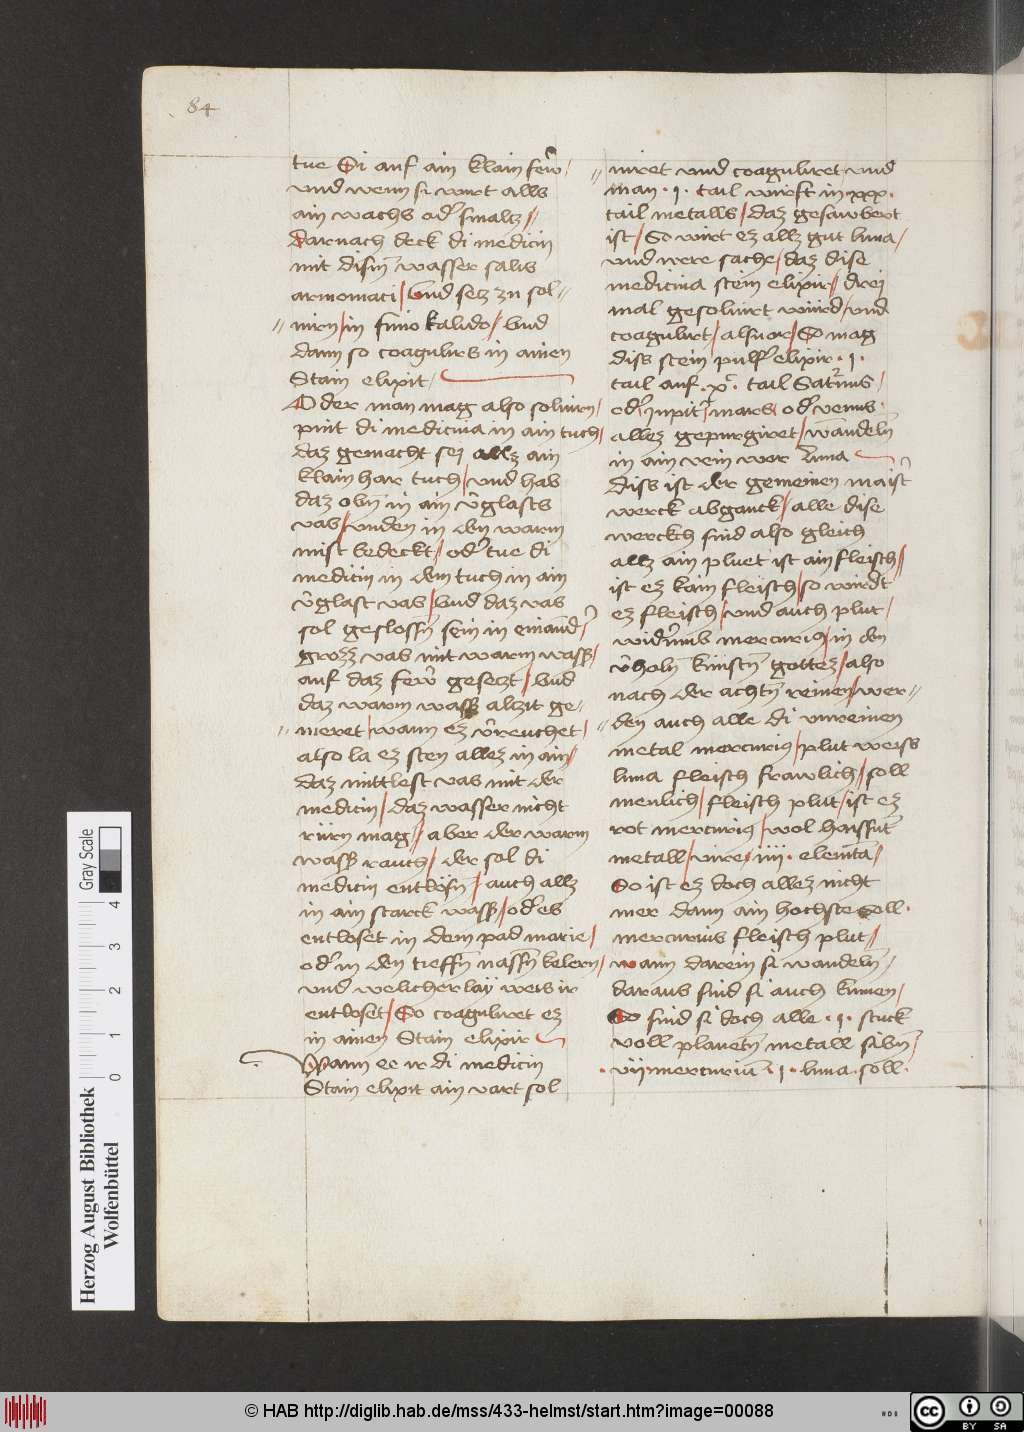 84
tue Si auf ain klain fewr /
vnd wenn si wirt alls
ain wachs oder smaltz //
Darnach deck di medicin
mit disem wasser salis
armoniaci / Vnd setz zu sol=
uirn / in fimo kalido / Vnd
dann so coagulirs in ainen
Stain elixit /
Oder man mag also soluirn /
pint di medicina in ain tuch /
daz gemacht sei allz ain
klain har tuch / vnd hab
daz obn in ain vglasts
vas / vnden in den warm
mist bedeckt / oder tue di
medicin in dem tuch in ain
vglast vas / Vnd daz vas
sol geslossn sein in einander /
grozz vas mit warm wasser /
auf daz fewr gesetzt / Vnd
daz warm wasser altzit ge=
meret / wann ez vreuchet /
also la ez sten allez in ain //
daz mittlest vas mit der
medicin / daz wasser nicht
rürn mag // aber der warm
wasser rauch / der sol di
medicin entlösn / auch allz
in ain starck wasser / oder es
entloset in dem pad marie /
oder in den tieffn nassn kelern /
vnd welicherlaÿ weis ir
entloset / So coaguliret ez
in ainen Stain elixir
Wann er ir di medicin
Stain elixit ain vart sol
uiret vnd coaguliret vnd
man · 1 · tail wirft in xxx ·
tail metalls / daz gesawbert
ist / So wirt ez allz gut luna /
vnd were sache / daz dise
medicina stein elixir // drei
mal gesoluirt würd / vnd
coagulirt / alsuor / So mag
diss stein pulfer elixir · 1 ·
tail auf · x · tail Saturnus /
oder jupiter mars oder venus ·
allez gepurgiret / wandeln
in ain vein wor luna
Diss ist der gemeinen maister
werck abganck / alle dise
werckh sind also gleich
allz ain pluet ist ain fleisch //
ist ez kain fleisch / so wirdt
ez fleisch / vnd auch plut /
widerumb mercurius / in den
vholn künstn gottez / also
nach der achtn reinen / wer=
den auch alle di vnreinen
metal mercurius / plut weiss
luna fleisch frawlich / soll
menlich / fleisch plut / ist ez
rot mercurius / wol haissent
metall / vnre / iiii · elementa /
So ist ez doch allez nicht
mer dann ain hochste soll ·
mercurius fleisch plut //
wann darein si wandeln /
daraus sind si auch kumen /
So sind si doch alle · 1 · stuck
voll planetn metall sibn /
· vij mercurium · 1 · luna · soll ·
Herzog August Bibliothek
Wolfenbüttel
Gray Scale
0 1 2 3 4
© HAB http://diglib.hab.de/mss/433-helmst/start.htm?image=00088
cc BY SA